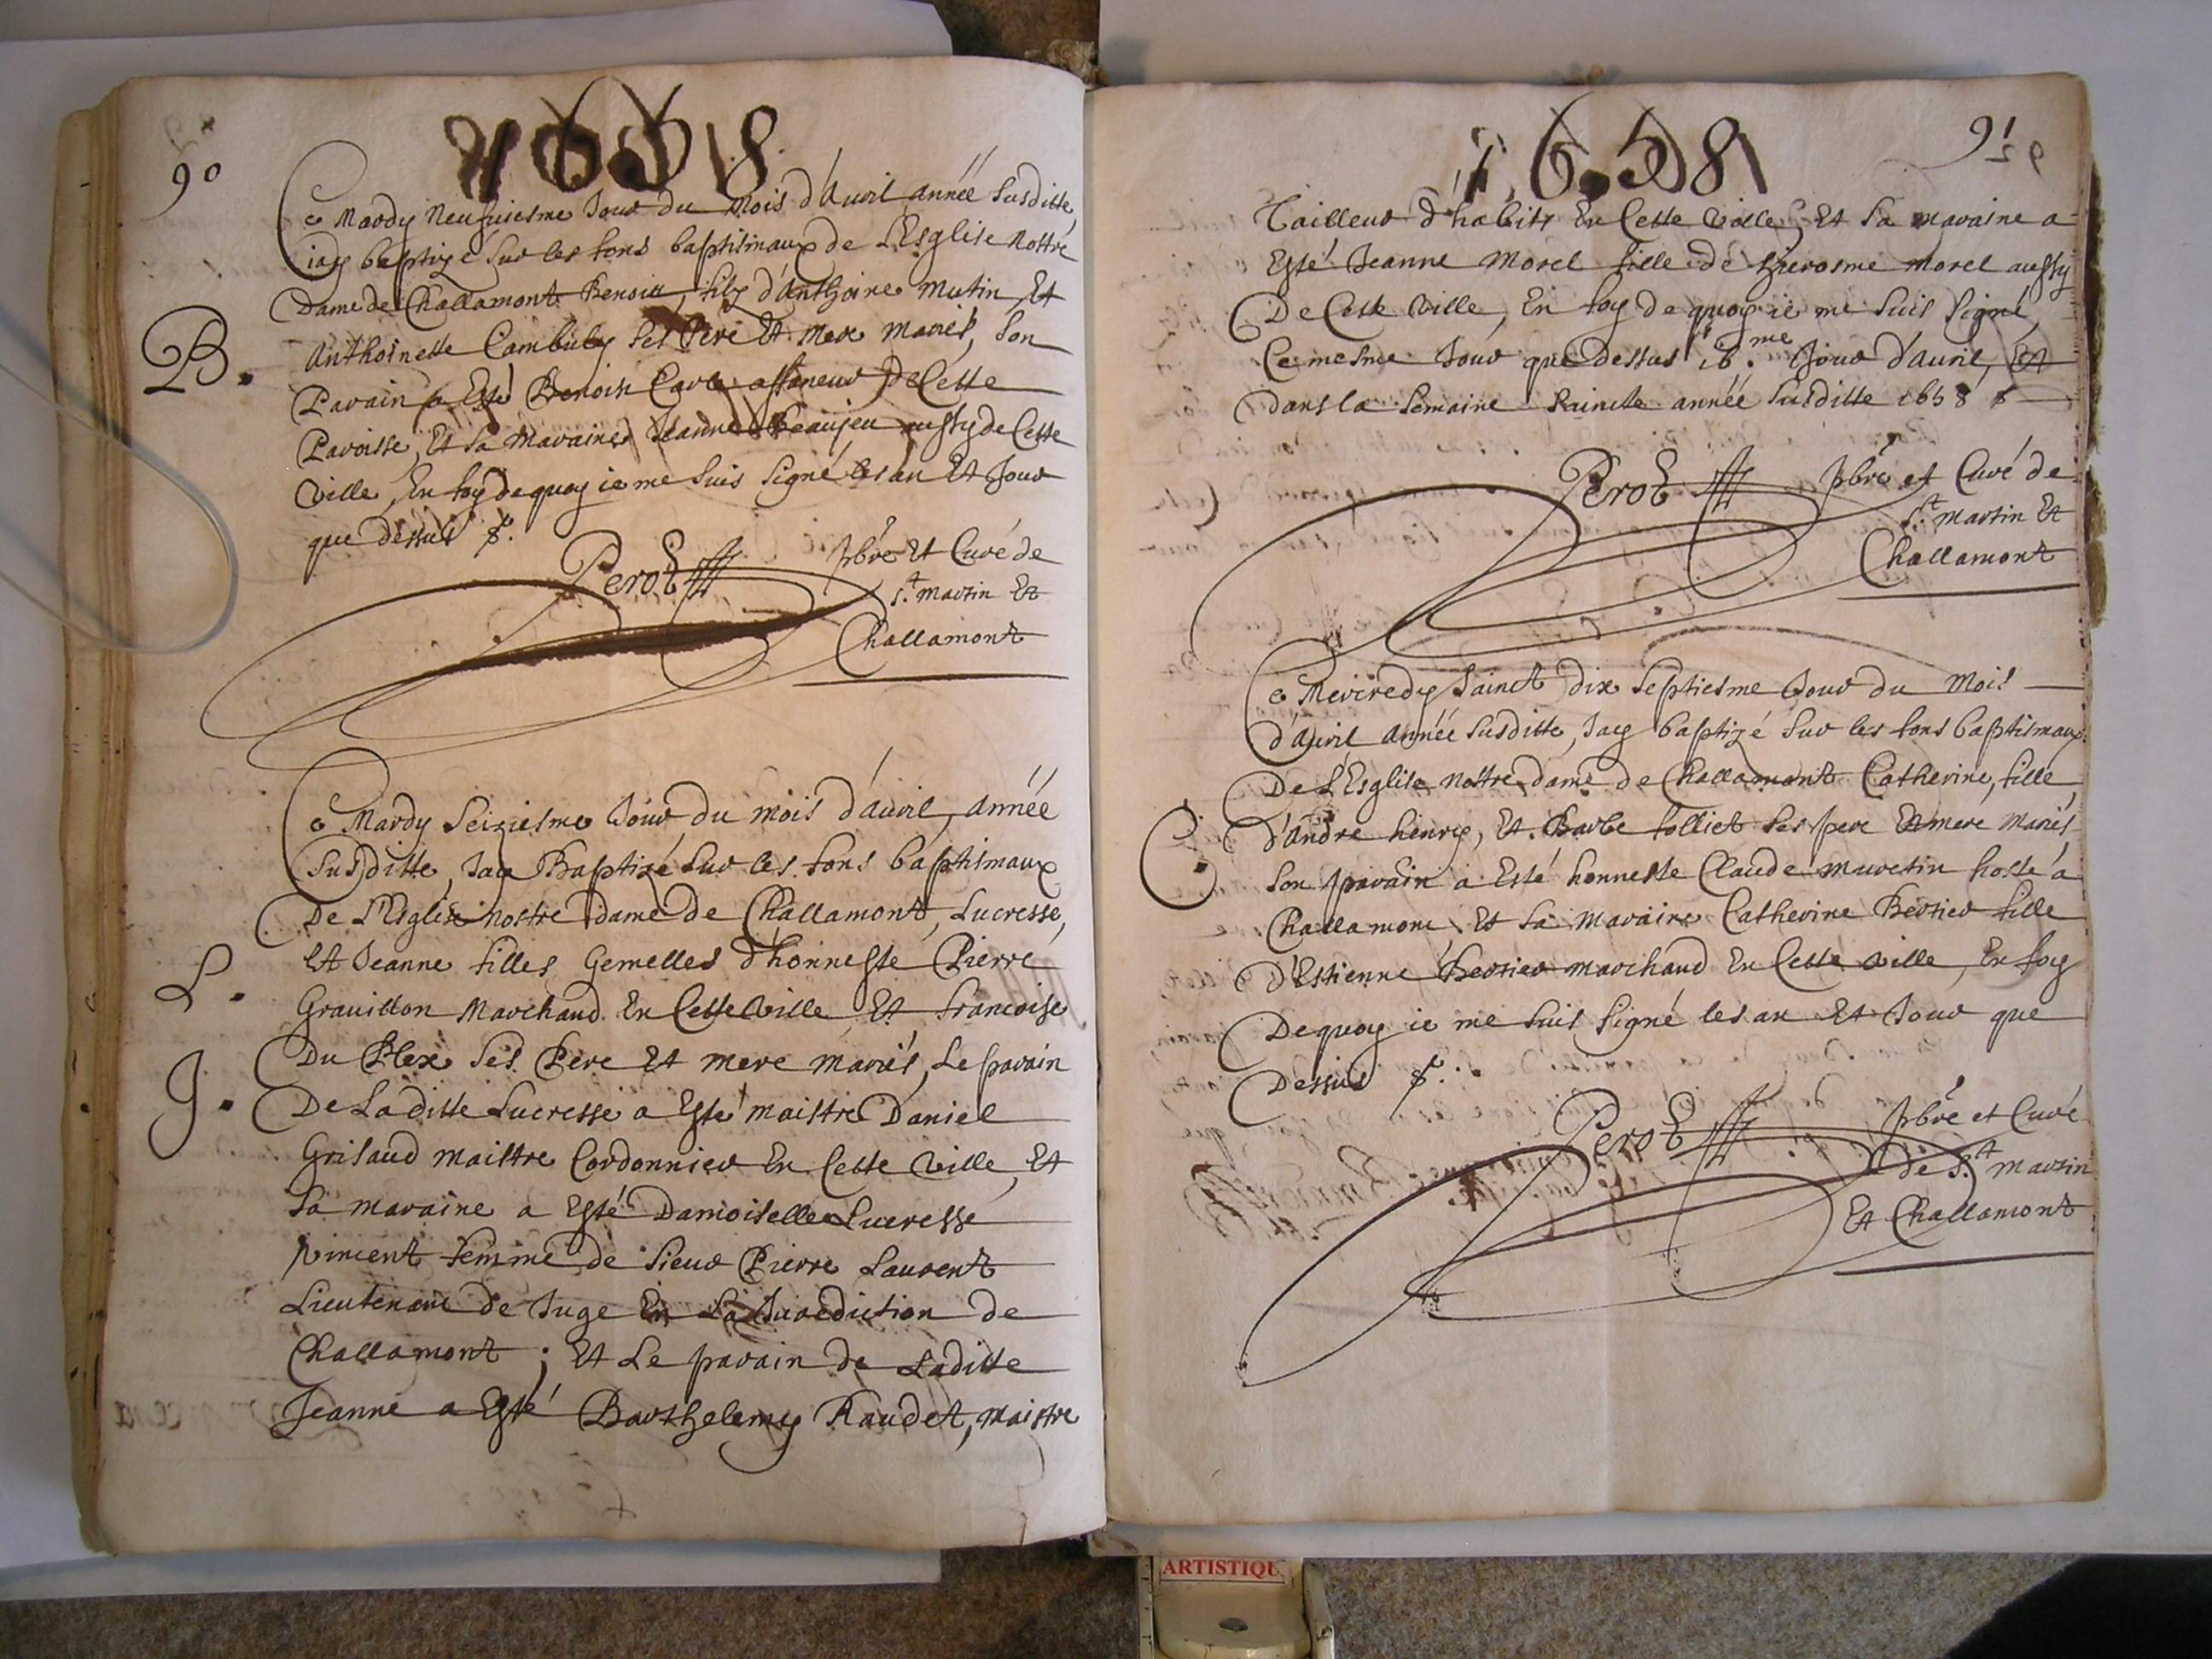 1658
90
Ce Mardy Neufuiesme Jour du Mois d'Auril année susditte
iay baptizé sur les fons baptismaux de L'Esglise Nostre
Dame de Challamont Benoist, filz d'Anthoine Mutin Et
B.
Anthoinette Cambuby ses Pere Et Mere mariés, son
Parain a Esté Benoist Carle affaneur De Cette
Paroisse, Et sa Maraine Jeanne Beaujeu aussy de Cette
Ville, En foy de quoy ie me suis signé les an Et Jour
que dessus
Perot pbre Et Curé de
St. Martin Et
Challamont
Ce Mardy seiziesme Jour du mois d'auril, année
susditte, Jay Baptizé sur les fons baptismaux
De L'Esglise nostre dame de Challamont, Lucresse,
Et Jeanne filles Gemelles d'honneste Pierre
L.
Grauillon Marchand En Cette Ville Et francoise
Du Plex ses Pere Et mere mariés, Le parain
J.
De Laditte Lucresse a Esté maistre Daniel
Grisaud maistre Cordonnier En Cette Ville, Et
sa maraine a Esté Damoiselle Lucresse
vincent femme de sieur Pierre Laurent
Lieutenant de Juge En La Jurediction de
Challamont ; Et Le parain de Laditte
Jeanne a Esté Barthelemy Raudet, maistre
1658
91
Tailleur d'habits En Cette Ville, Et sa maraine a
Esté Jeanne Morel fille de hierosme morel aussy
De Cette Ville, En foy de quoy ie me suis signé,
Ce mesme Jour que dessus 16.me Jour d'auril, Et
dans la semaine saincte année susditte 1658
Perot pbre et Curé de
St. Martin Et
Challamont
Ce Mercredy sainct dix septiesme Jour du Mois
d'Auril année susditte, Jay baptizé sur les fons baptismaux
De L'Esglise nostre dame de Challamont Catherine, fille
C.
d'Andre henry, Et Barbe folliet ses pere Et mere mariés
son parain a Esté honneste Claude Muretin hoste á
Challamont Et sa maraine Catherine Bertier fille
d'Estienne Bertier marchand En Cette Ville, En foy
De quoy ie me suis signé les an Et Jour que
Dessus
Perot pbre et Curé
de St. Martin
Et Challamont
ARTISTIQU